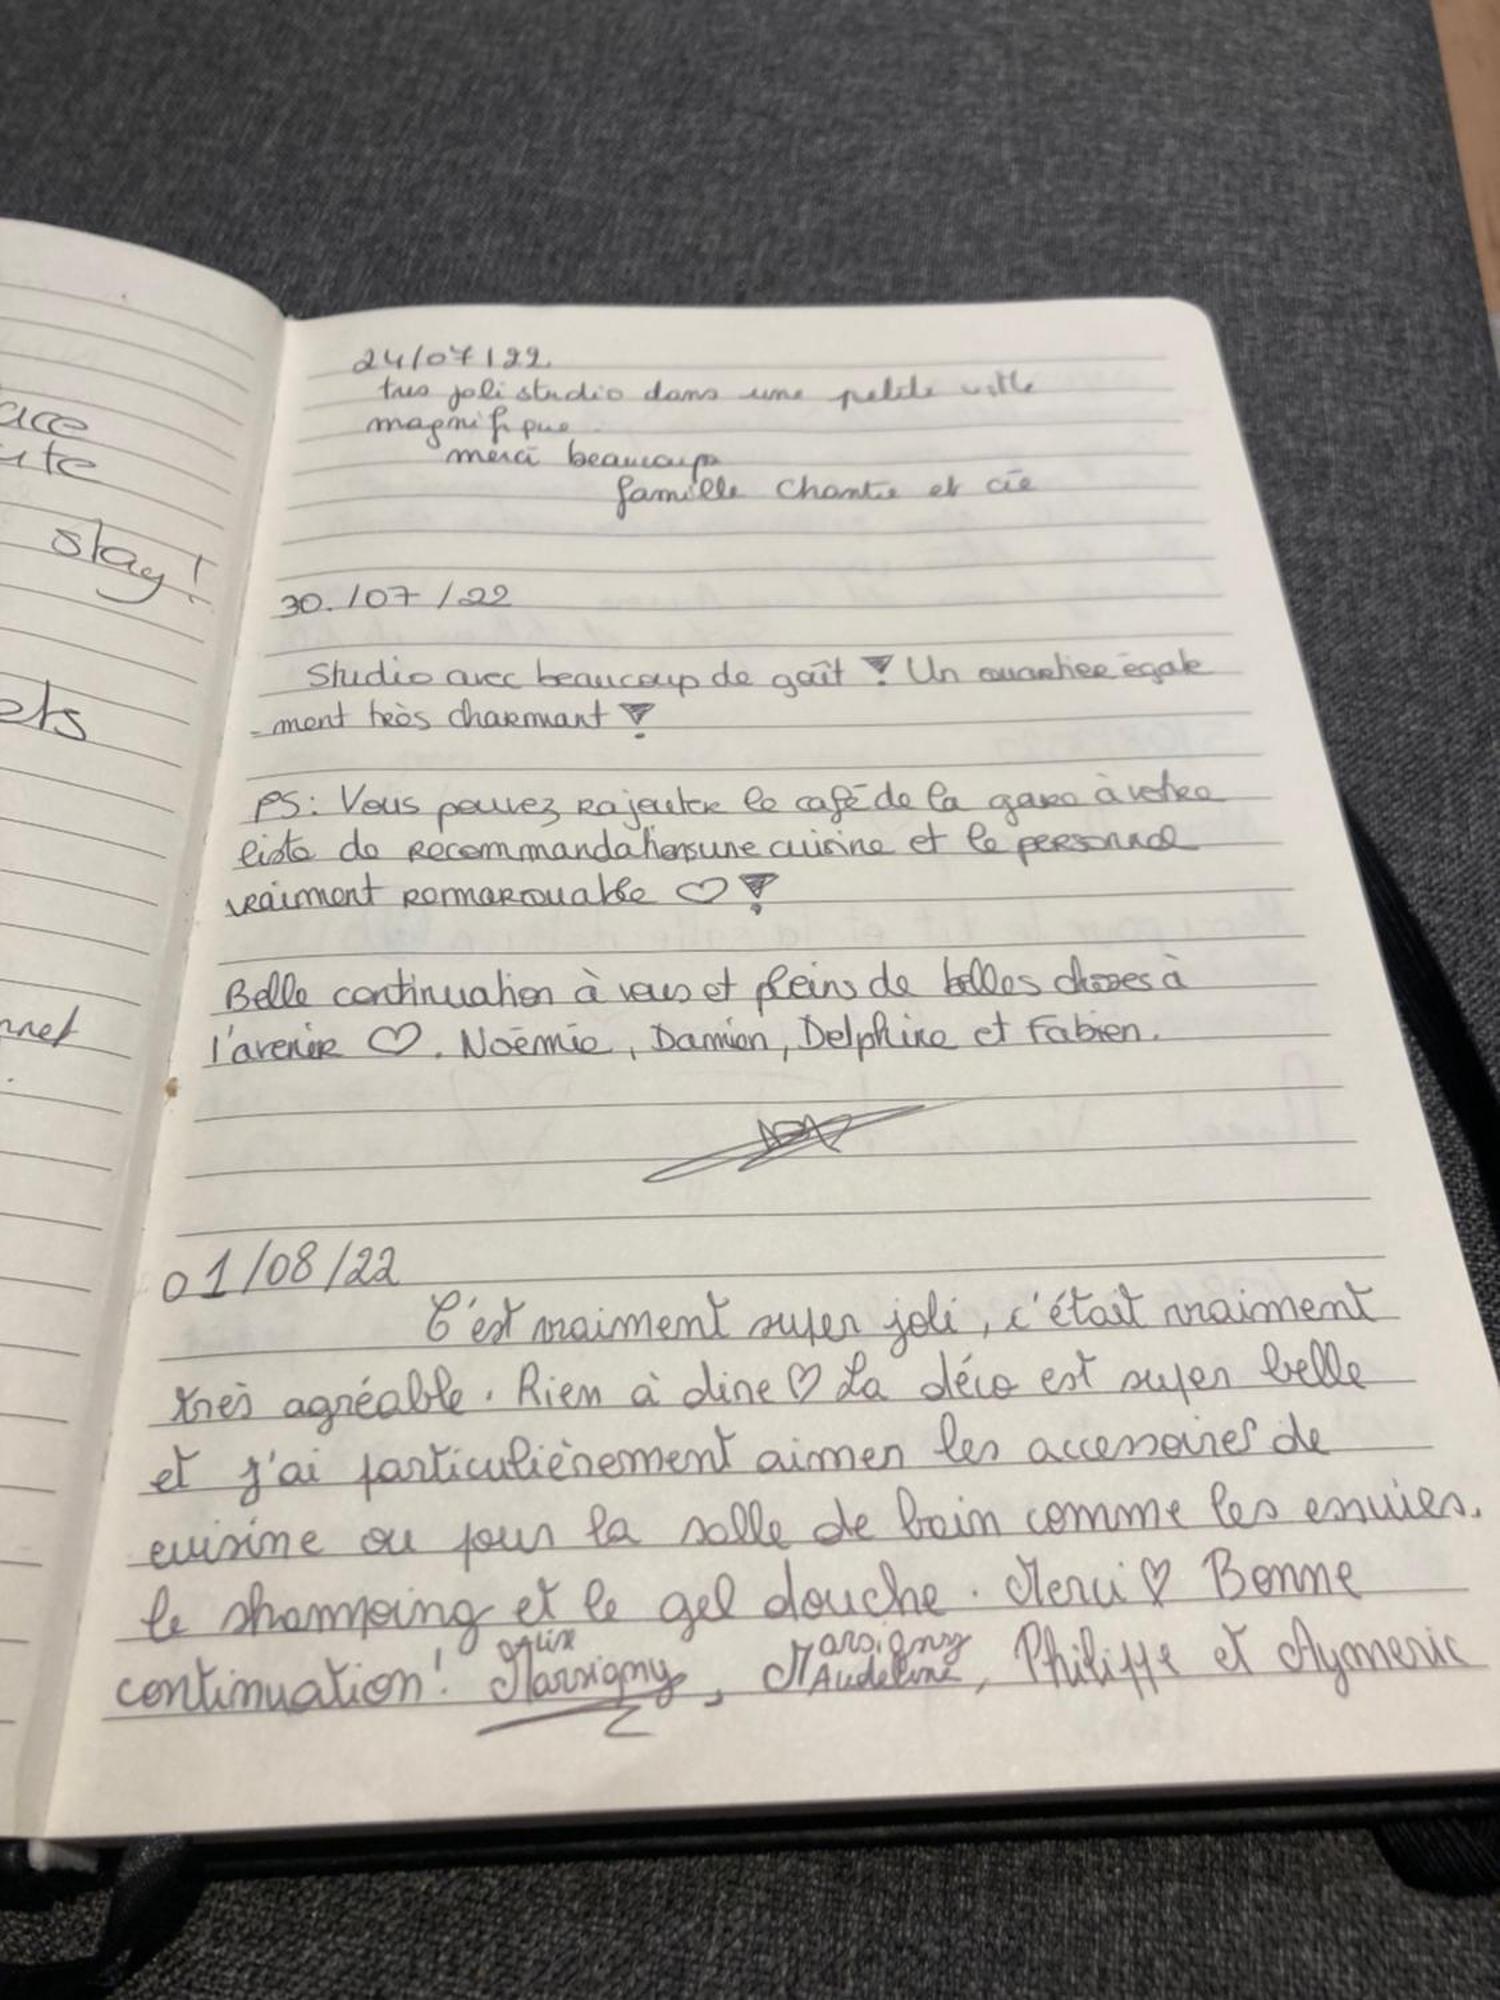 ace
ute
stay!
ets
nnet
24/07/22.
tres joli studio dans une petite ville
magnifique.
merci beaucoup
famille Chantie et cie
30./07/22
Studio avec beaucoup de gaît ! Un quartier égale
-ment très charmant !
PS: Vous pouvez rajouter le café de la gare à votre
liste de recommandations une cuisine et le personnel
vraiment remarquable ♡ !
Belle continuation à vous et pleins de belles choses à
l'avenir ♡. Noémie, Damien, Delphine et Fabien.
01/08/22
C'est vraiment super joli, c'était vraiment
très agréable. Rien à dire ♡ La déco est super belle
et j'ai particulièrement aimer les accessoires de
cuisine ou pour la salle de bain comme les essuies,
le shampoing et le gel douche. Merci ♡ Bonne
continuation! Alix Marsigny, Marsigny Audeline, Philippe et Aymeric